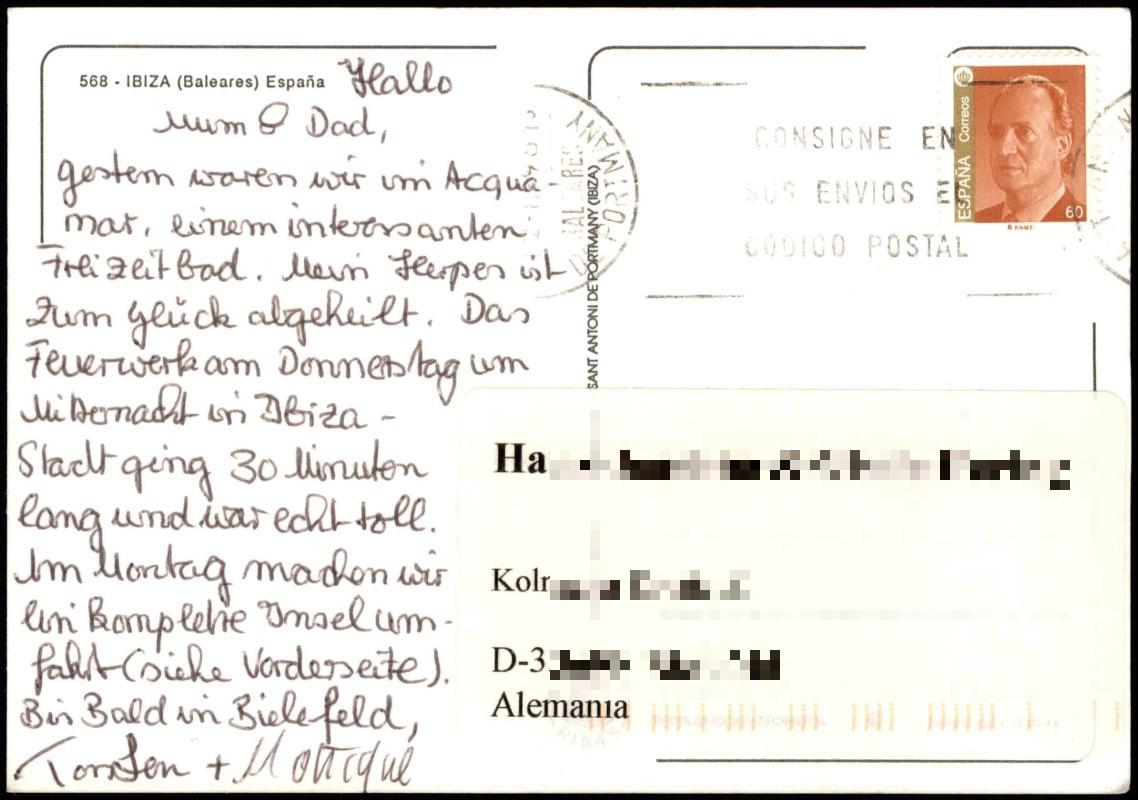 568 - IBIZA (Baleares) España
Hallo
Mum & Dad,
gestern waren wir im Acqua-
mar, einem interessanten
Freizeitbad. Mein Herpes ist
zum Glück abgeheilt. Das
Feuerwerk am Donnerstag um
Mitternacht in Ibiza-
Stadt ging 30 Minuten
lang und war echt toll.
Am Montag machen wir
ein komplette Inselum-
fahrt (siehe Vorderseite).
Bis Bald in Bielefeld,
Torsten + Monique
SANT ANTONI DE PORTMANY (IBIZA)
BALEARES
PORTMANY
CONSIGNE EN
SUS ENVIOS EL
CODIGO POSTAL
ESPAÑA Correos
60
Ha
Koln
D-3
Alemania